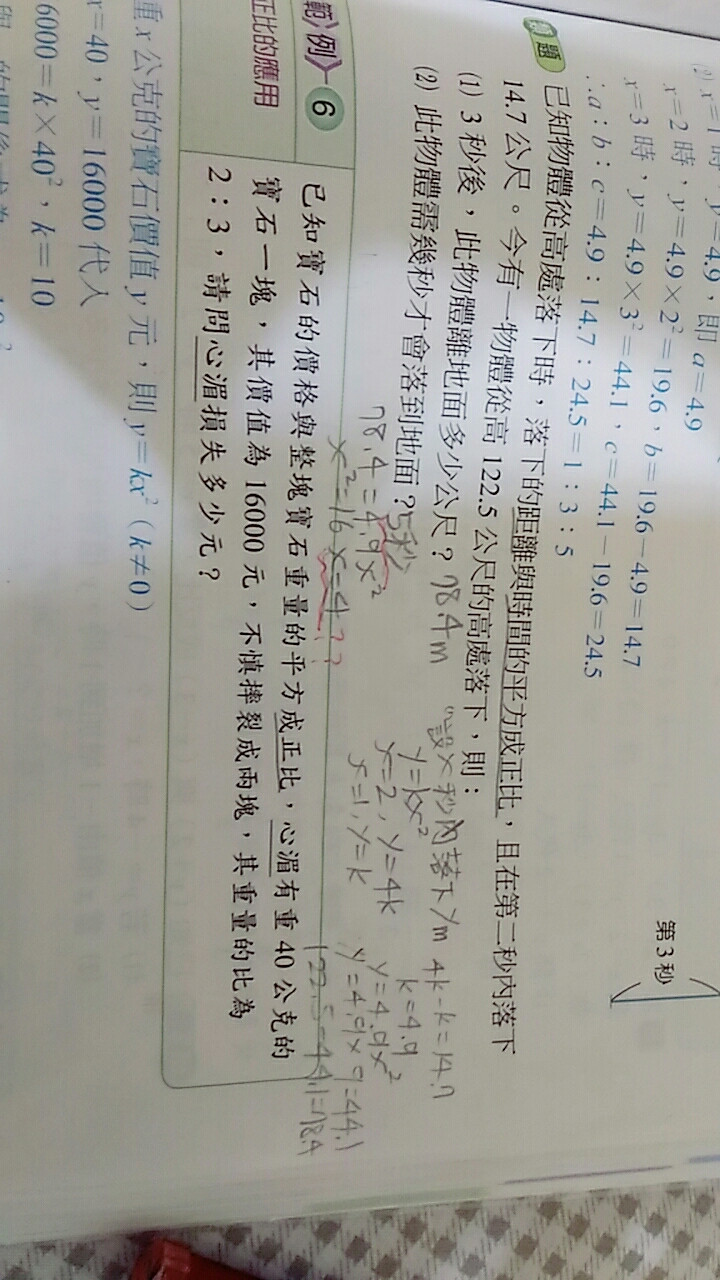 y=4.9，即 a=4.9
x=2 時，y=4.9×2²=19.6，b=19.6−4.9=14.7
x=3 時，y=4.9×3²=44.1，c=44.1−19.6=24.5
∴a：b：c=4.9：14.7：24.5=1：3：5
第3秒
題
已知物體從高處落下時，落下的距離與時間的平方成正比，且在第二秒內落下
14.7 公尺。今有一物體從高 122.5 公尺的高處落下，則：
(1) 3 秒後，此物體離地面多少公尺？78.4m
(2) 此物體需幾秒才會落到地面？5秒
設x秒內落下ym
y=kx²
x=2，y=4k
x=1，y=k
4k-k=14.7
k=4.9
y=4.9x²
y=4.9×9=44.1
122.5-44.1=78.4
78.4=4.9x²
x²=16 x=4??
範例 6
正比的應用
已知寶石的價格與整塊寶石重量的平方成正比，心湄有重 40 公克的
寶石一塊，其價值為 16000 元，不慎摔裂成兩塊，其重量的比為
2：3，請問心湄損失多少元？
重 x 公克的寶石價值 y 元，則 y=kx²（k≠0）
x=40，y=16000 代入
6000=k×40²，k=10